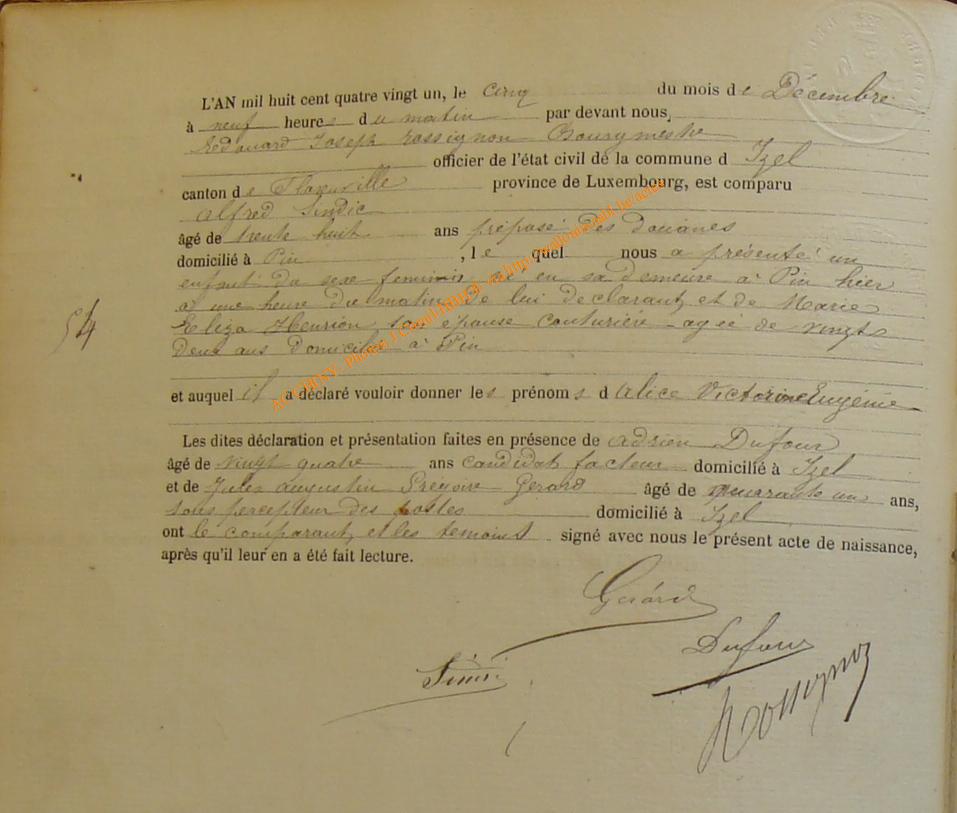 L'AN mil huit cent quatre vingt un, le Cinq du mois de Décembre
à neuf heures du matin par devant nous,
Joseph Rossignon Bourgmestre
officier de l'état civil de la commune d Izel
canton de Florenville province de Luxembourg, est comparu
Alfred Sindic
âgé de trente huit ans préposé des Douanes
domicilié à Pin , le quel nous a présenté un
enfant du sexe feminin né en sa demeure à Pin hier
à une heure du matin de lui declarant et de Marie
Eliza Henrion son épouse couturière agée de vingt
54
Deux ans Domiciliée à Pin
et auquel il a déclaré vouloir donner les prénoms d Alice Victorine Eugénie
Les dites déclaration et présentation faites en présence de Adrien Dufour
âgé de vingt quatre ans candidat facteur domicilié à Izel
et de Jules Augustin Gregoire Gerard âgé de quarante un ans,
sous percepteur des postes domicilié à Izel
ont le comparant et les temoins signé avec nous le présent acte de naissance,
après qu'il leur en a été fait lecture.
Gérard
Dufour
Rossignon